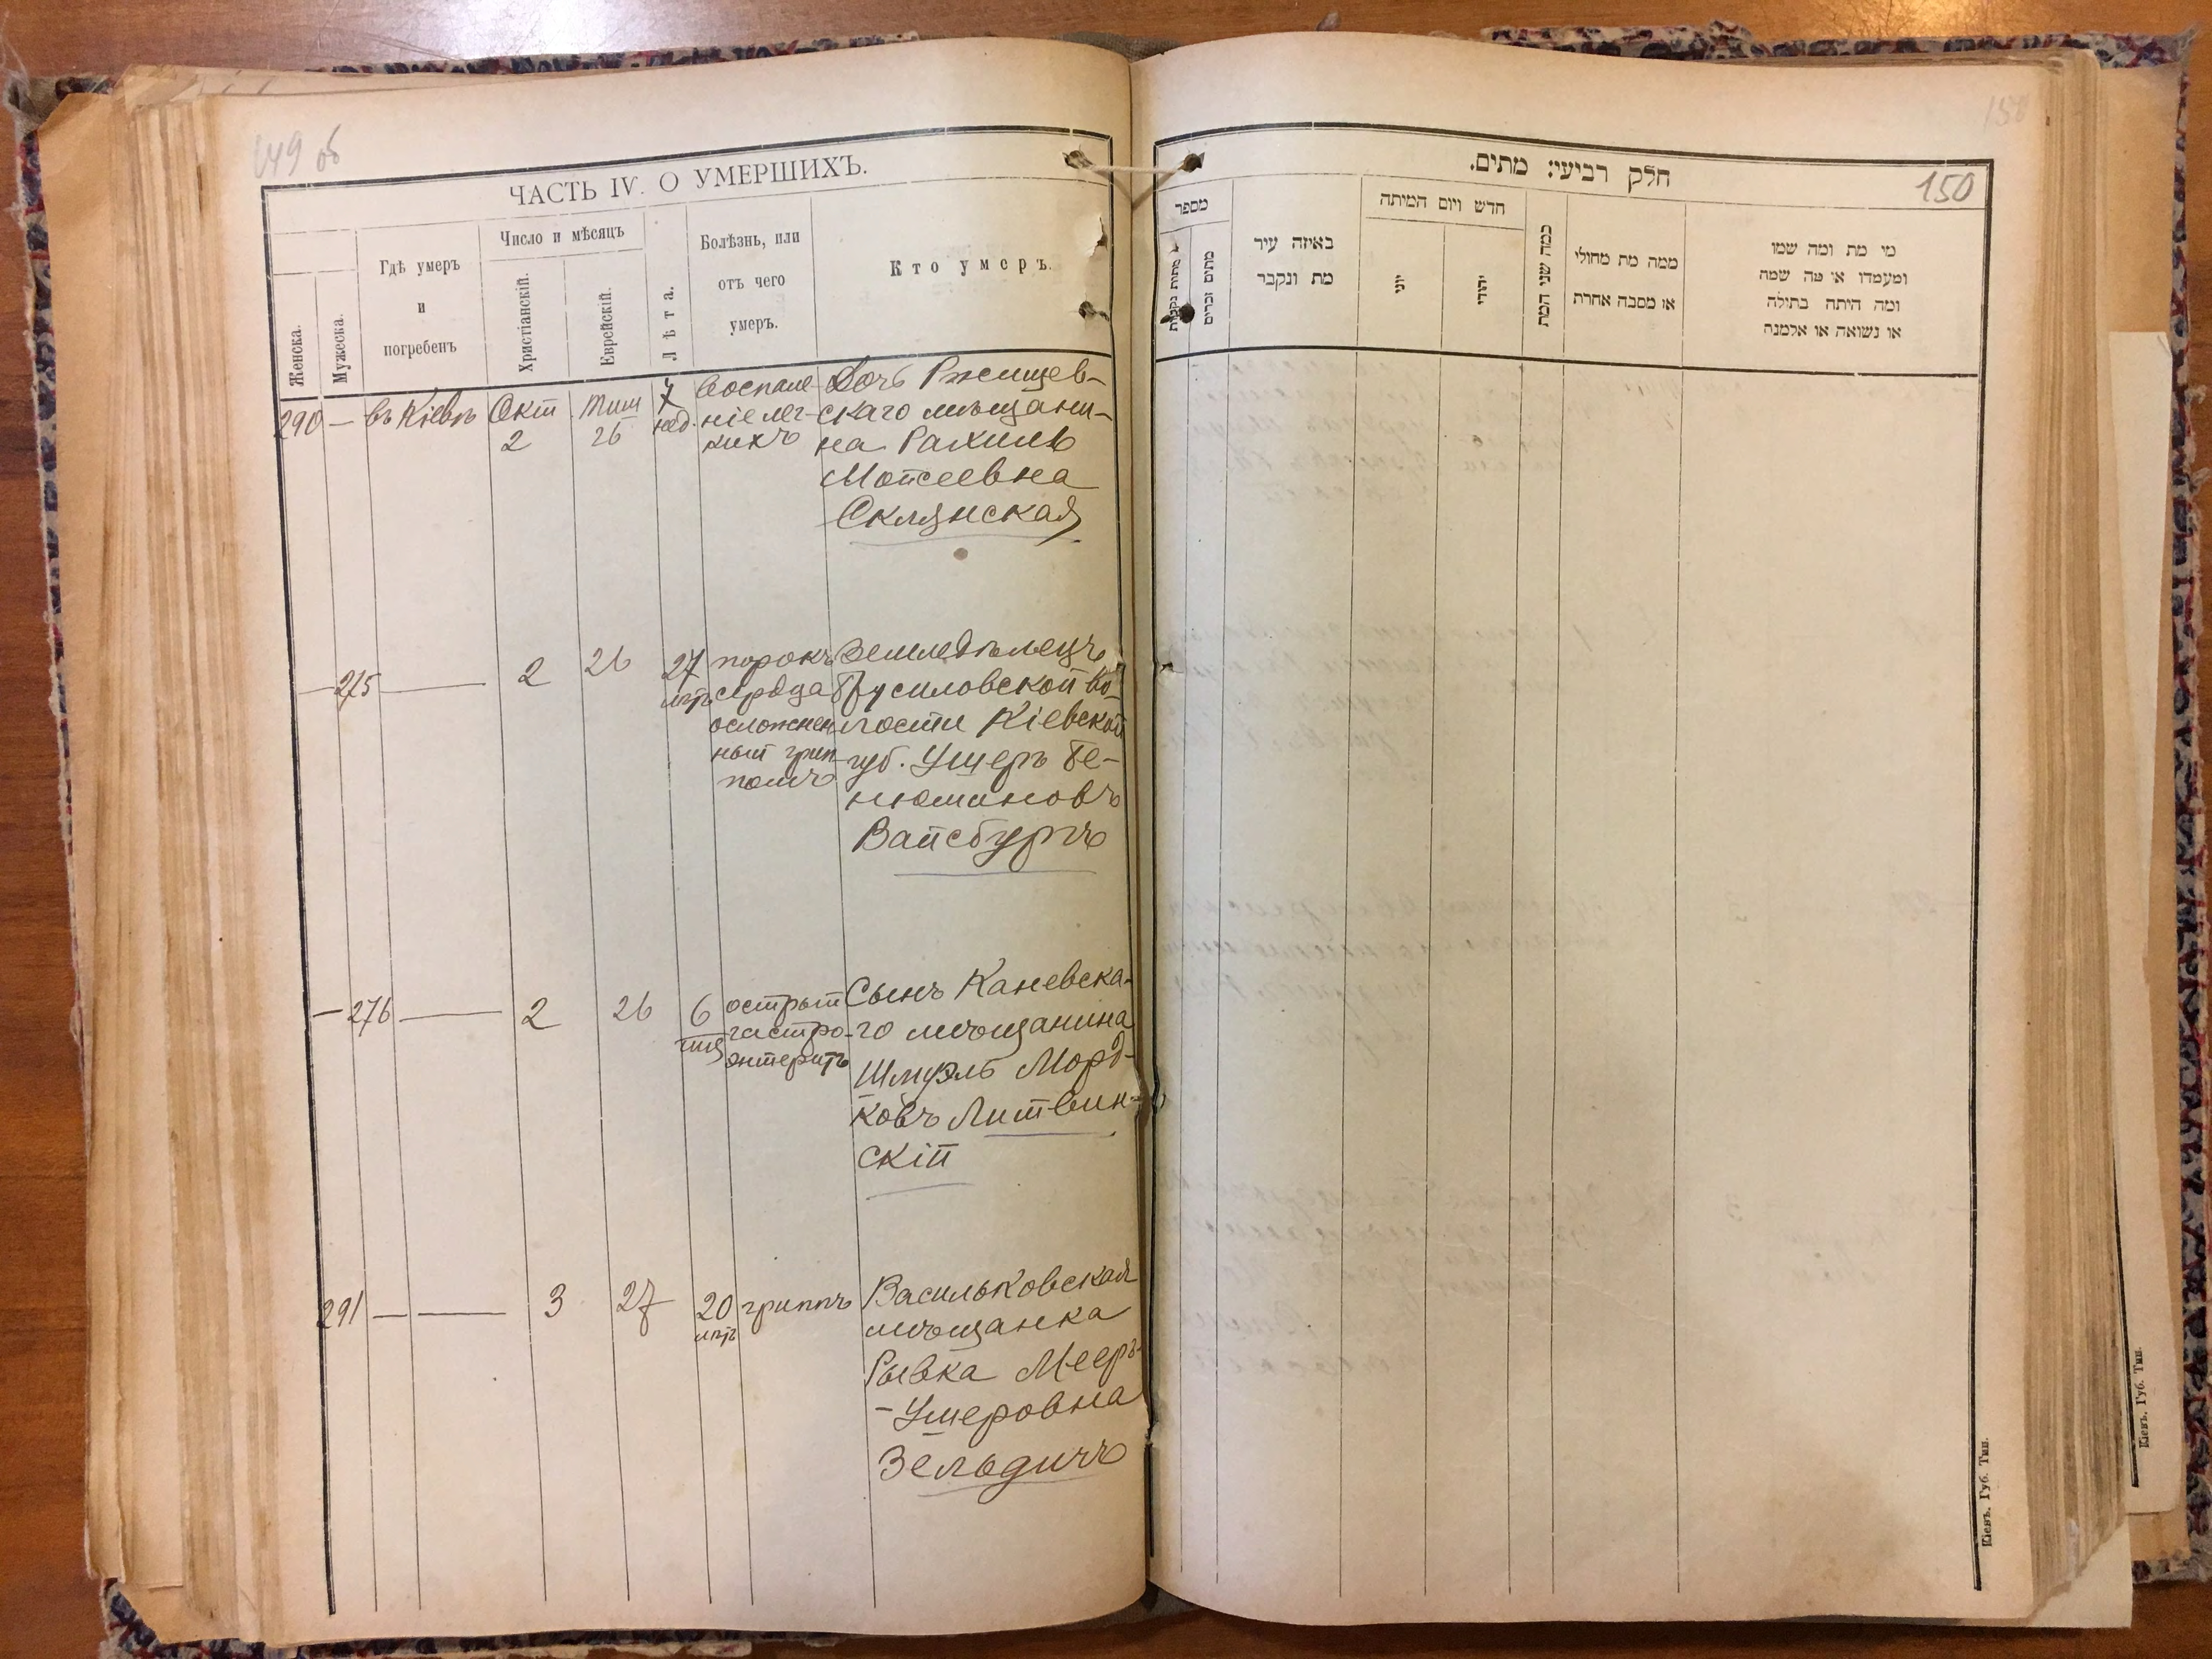 149 об
ЧАСТЬ IV. О УМЕРШИХЪ.
Женска.
Мужеска.
Гдѣ умеръ
и
погребенъ
Число и мѣсяцъ
Христіанскій.
Еврейскій.
Лѣта.
Болѣзнь, или
отъ чего
умеръ.
Кто умеръ.
290 — въ Кіевѣ Окт 2 Тиш 26 7 нед. воспале-
ніе лег-
кихъ
Дочь Ржищев-
скаго мѣщани-
на Рахиль
Мойсеевна
Склянская
— 275 — 2 26 27 лѣтъ порокъ
сердца
осложнен
ный грип-
помъ
Земледѣлецъ
Брусиловской во-
лости Кіевской
губ. Ушеръ Бе-
нюминовъ
Вайсбургъ
— 276 — 2 26 6 острый
гастро-
энтеритъ
Сынъ Каневска-
го мѣщанина
Шмуэль Морд-
ковъ Литвин-
скій
291 — — 3 27 20 лѣтъ гриппъ
Васильковская
мѣщанка
Рывка Мееръ-
-Ушеровна
Зельдичъ
150
חלק רביעי: מתים.
150
מספר
מתות נקבות
מתים זכרים
באיזה עיר
מת ונקבר
חדש ויום המיתה
יוני
יהודי
כמה שני המת
ממה מת מחולי
או מסבה אחרת
מי מת ומה שמו
ומעמדו או מה שמה
ומה היתה בתולה
או נשואה או אלמנה
Кіевъ. Губ. Тип.
Кіевъ. Губ. Тип.